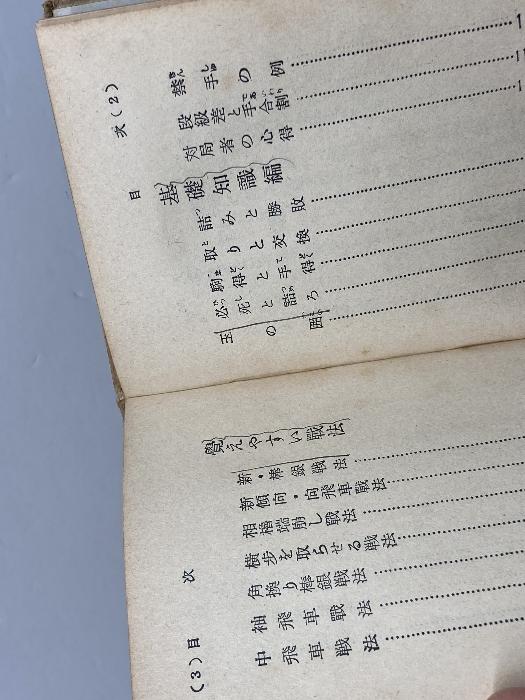 目次(2)
禁手の例
段級差と手合割
対局者の心得
基礎知識編
詰みと勝敗
取りと交換
駒得と手得
必死と詰ろ
玉の囲
(3)目次
覺えやすい戰法
新・棒銀戦法
新傾向・向飛車戰法
相櫓端崩し戰法
横歩を取らせる戦法
角換り棒銀戦法
袖飛車戰法
中飛車戦法